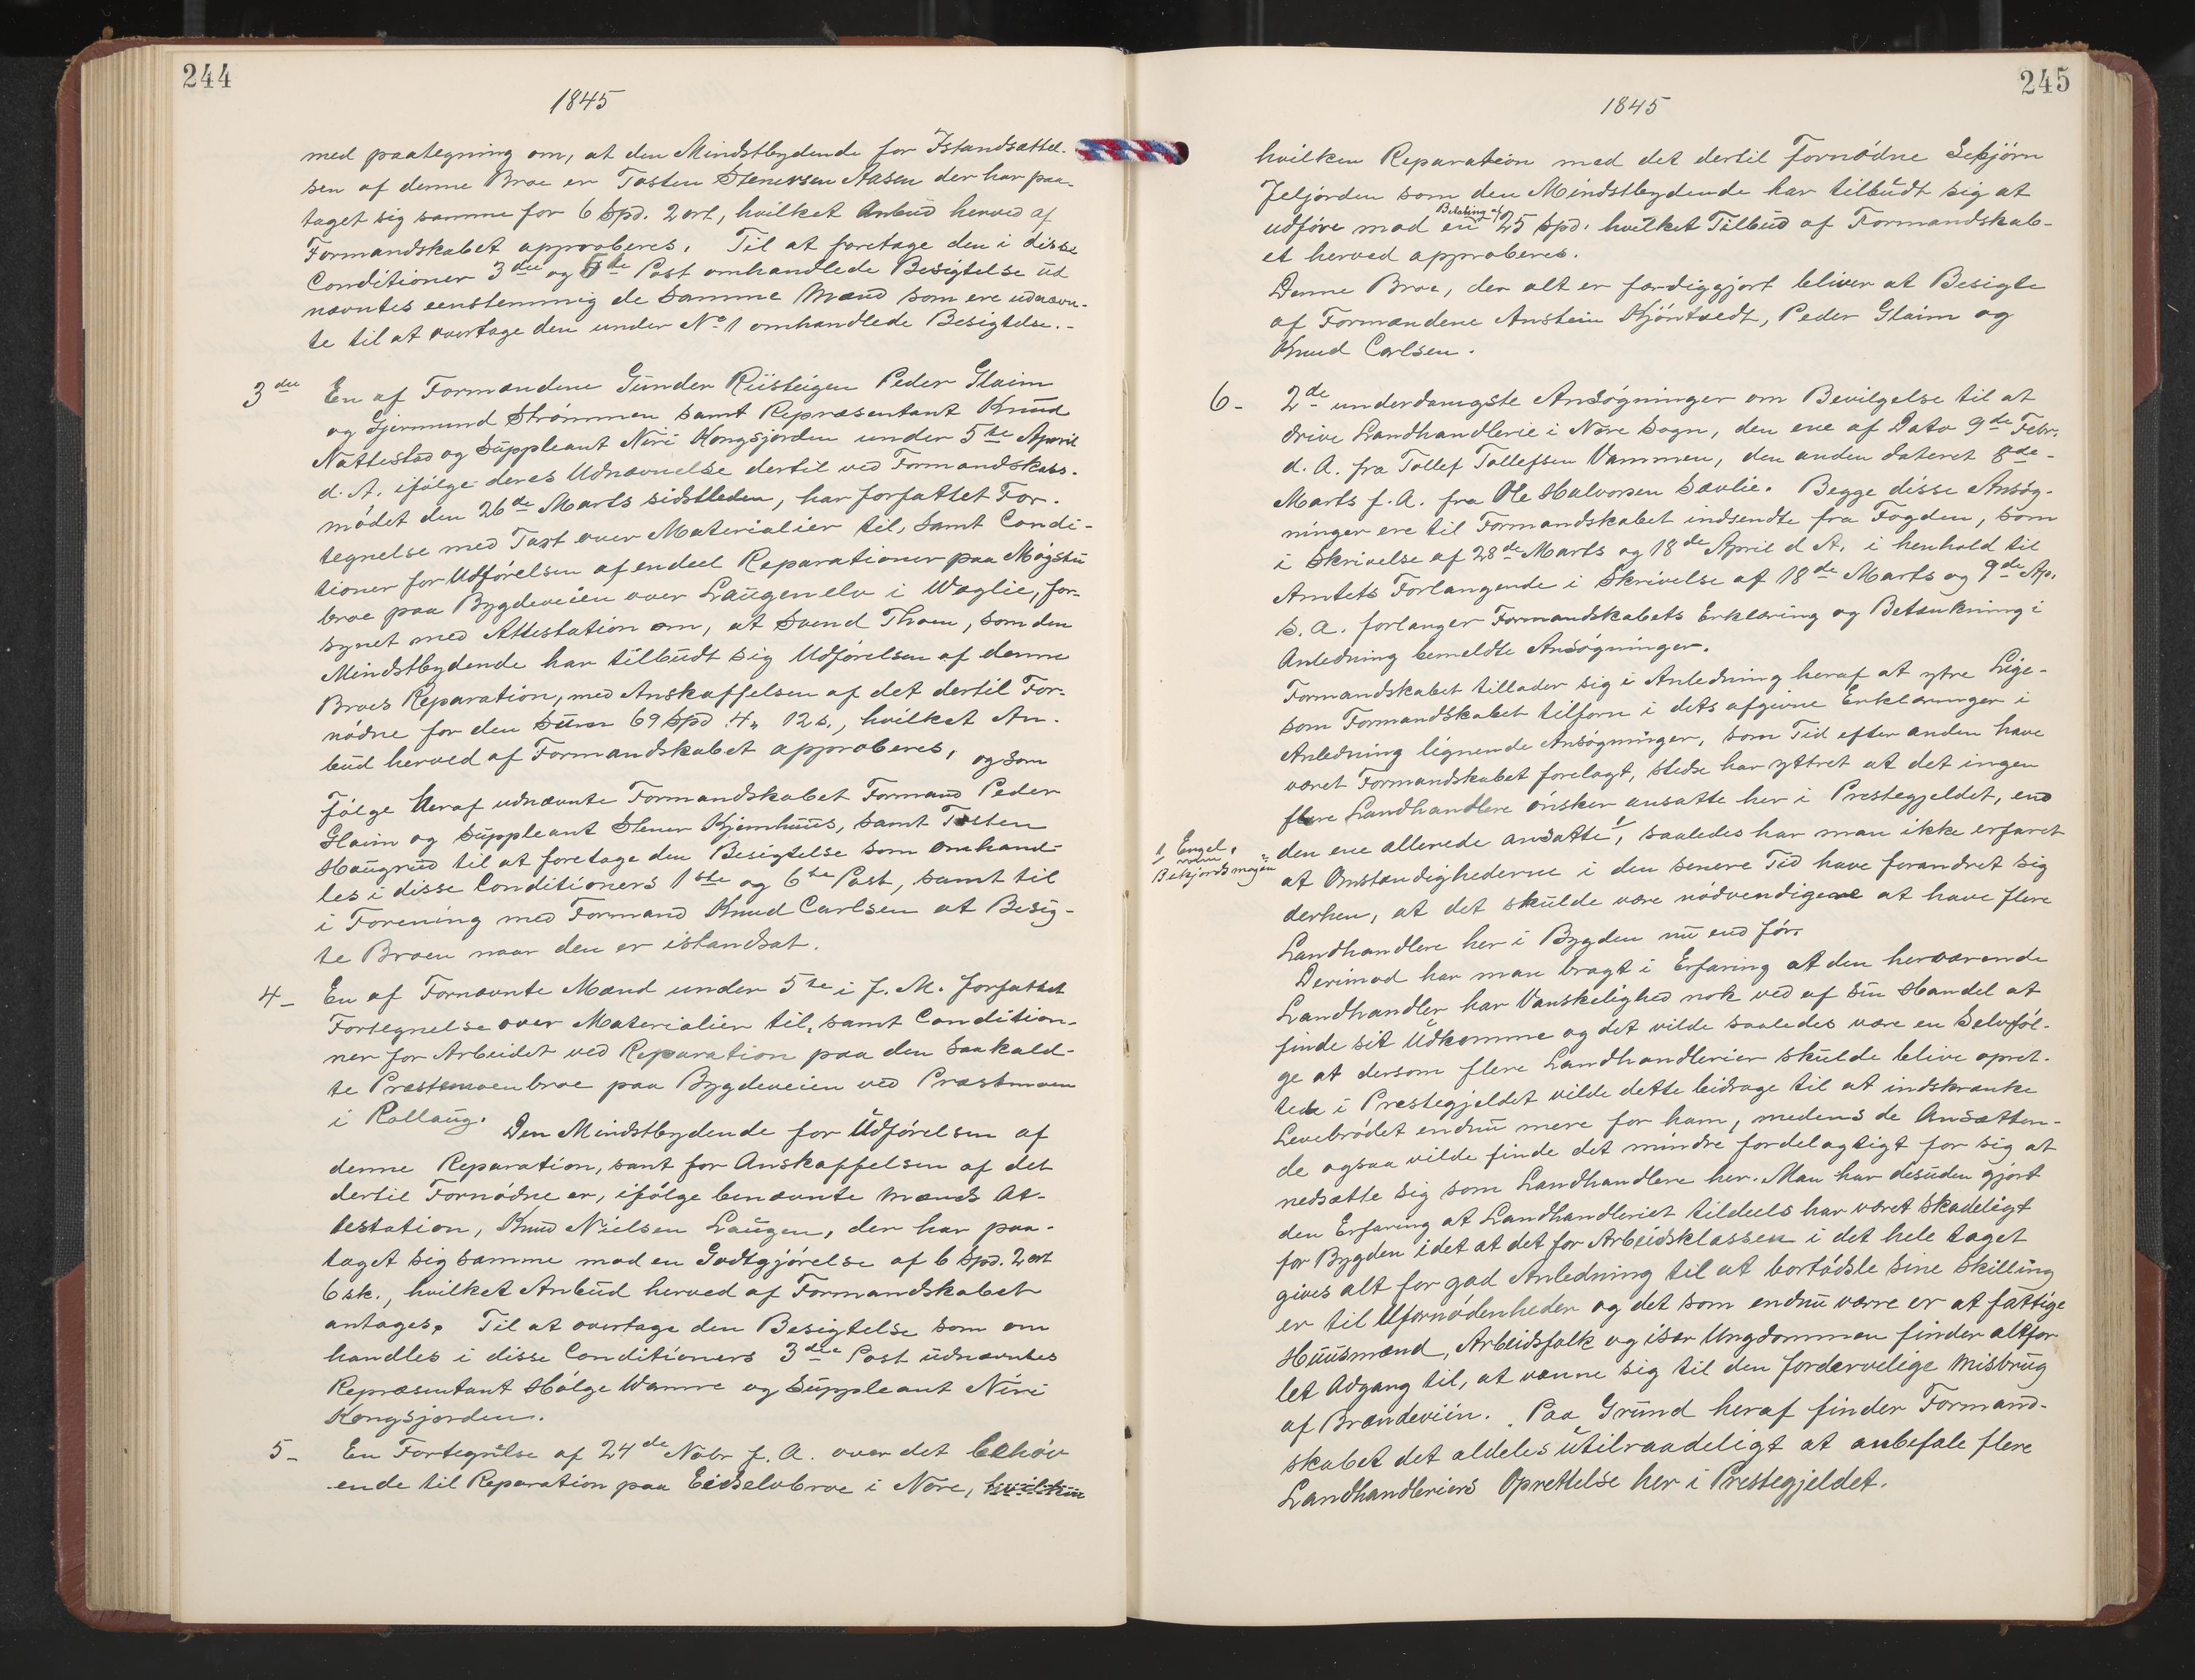 244
1845
med paategning om, at den Mindstbydende for Istandsættel-
sen af denne Broe er Tosten Stenersen Aasen der har paa-
taget sig samme for 6 Spd. 2 ort, hvilket Anbud herved af
Formandskabet approberes. Til at foretage den i disse
Conditioner 3die og 5te Post omhandlede Besigtelse ud
nævntes eenstemmig de samme Mænd som ere udnævn-
te til at overtage den under No 1 omhandlede Besigtelse.-
3die En af Formændene Gunder Riisteigen Peder Glaim
og Gjermund Strømmen samt Repræsentant Knud
Nattestad og Suppleant Niri Kongsjorden under 5te April
d. A. ifølge deres Udnævnelse dertil ved Formandskabs-
mødet den 26de Marts sidstleden, har forfattet For-
tegnelse med Taxt over Materialier til, samt Condi-
tioner for Udførelsen af endeel Reparationer paa Mogstu
broe paa Bygdeveien over Laugen elv i Væglie, for-
synet med Attestation om, at Svend Thoen, som den
Mindstbydende har tilbudt sig Udførelsen af denne
Broes Reparation, med Anskaffelsen af det dertil For-
nødne for den Sum 69 Spd 4" 12 s., hvilket An-
bud herved af Formandskabet approberes, og som
Følge heraf udnævnte Formandskabet Formand Peder
Glaim og Suppleant Stener Kjemhuus, samt Tosten
Haugrud til at foretage den Besigtelse som omhand-
les i disse Conditioners 1ste og 6te Post, samt til
i Forening med Formand Knud Carlsen at Besig-
te Broen naar den er istandsat.
4- En af Fornævnte Mænd under 5te i f. M. forfattet
Fortegnelse over Materialier til, samt Condition-
ner for Arbeidet ved Reparation paa den saakald-
te Præstemoen broe paa Bygdeveien ved Præstmoen
i Rollaug. Den Mindstbydende for Udførelsen af
denne Reparation, samt for Anskaffelsen af det
dertil Fornødne er, ifølge benævnte Mænds At-
testation, Knud Nielsen Laugen, der har paa-
taget sig samme mod en Godtgjørelse af 6 Spd. 2 ort
6 sk., hvilket Anbud herved af Formandskabet
antages. Til at overtage den Besigtelse som om
handles i disse Conditioners 3die Post udnævntes
Repræsentant Hølge Wamre og Suppleant Niri
Kongsjorden.
5- En Fortegnelse af 24de Nobr f. A. over det behøv
ende til Reparation paa Eidselvbroe i Nore, hvilken
245
1845
hvilken Reparation med det dertil fornødne
som den Mindstbydende har tilbudt sig at
udføre mod en Betaling af 25 Spd. hvilket Tilbud af Formandskab-
et herved approberes.
Denne Broe, der alt er færdiggjort bliver at Besigte
af Formændene Anstein Kjøntvedt, Peder Glaim og
Knud Carlsen.
6- 2de underdanigste Ansøgninger om Bevilgelse til at
drive Landhandlerie i Nore Sogn, den ene af Dato 9de Febr.
d. A. fra Tollef Tollefsen Vammen, den anden dateret 8de-
Marts f. A. fra Ole Halvorsen Sævlie. Begge disse Ansøg-
ninger ere til Formandskabet indsendte fra Fogden, som
i Skrivelse af 28de Marts og 18de April d A. i henhold til
Amtets Forlangende i Skrivelse af 18de Marts og 9de Ap.
s. A. forlanger Formandskabets Erklæring og Betænkning i
Anledning bemeldte Ansøgninger.
Formandskabet tillader sig i Anledning heraf at ytre Lige-
som Formandskabet tilforn i dets afgivne Erklæringer i
Anledning lignende Ansøgninger, som Tid efter anden have
været Formandskabet forelagt, stedse har yttret at det ingen
flere Landhandlere ønsker ansatte her i Prestegjeldet, end
den ene allerede ansatte 1/, saaledes har man ikke erfaret
1/ Engel
at Omstændighederne i den senere Tid have forandret sig
derhen, at det skulde være nødvendigere at have flere
Landhandlere her i Bygden nu end før.
Derimod har man bragt i Erfaring at den herværende
Landhandler har Vanskelighed nok ved af sin Handel at
finde sit Udkomme og det vilde saaledes være en Selvføl-
ge at dersom flere Landhandlerier skulde blive opret-
tede i Prestegjeldet vilde dette bidrage til at indskrænke
Levebrødet endnu mere for ham, medens de Ansætten-
de ogsaa vilde finde det mindre fordelagtigt for sig at
nedsætte sig som Landhandlere her. Man har desuden gjort
den Erfaring at Landhandleriet tildeels har været skadeligt
for Bygden idet at det for Arbeidsklassen i det hele taget
gives alt for god Anledning til at bortødsle sine Skilling
er til Ufornødenheder og det som endnu værre er at fattige
Huusmænd, Arbeidsfolk og især Ungdommen finder altfor
let Adgang til, at vænne sig til den fordervelige Misbrug
af Brændeviin. Paa Grund heraf finder Formand-
skabet det aldeles utilraadeligt at anbefale flere
Landhandleriers Oprettelse her i Prestegjeldet.